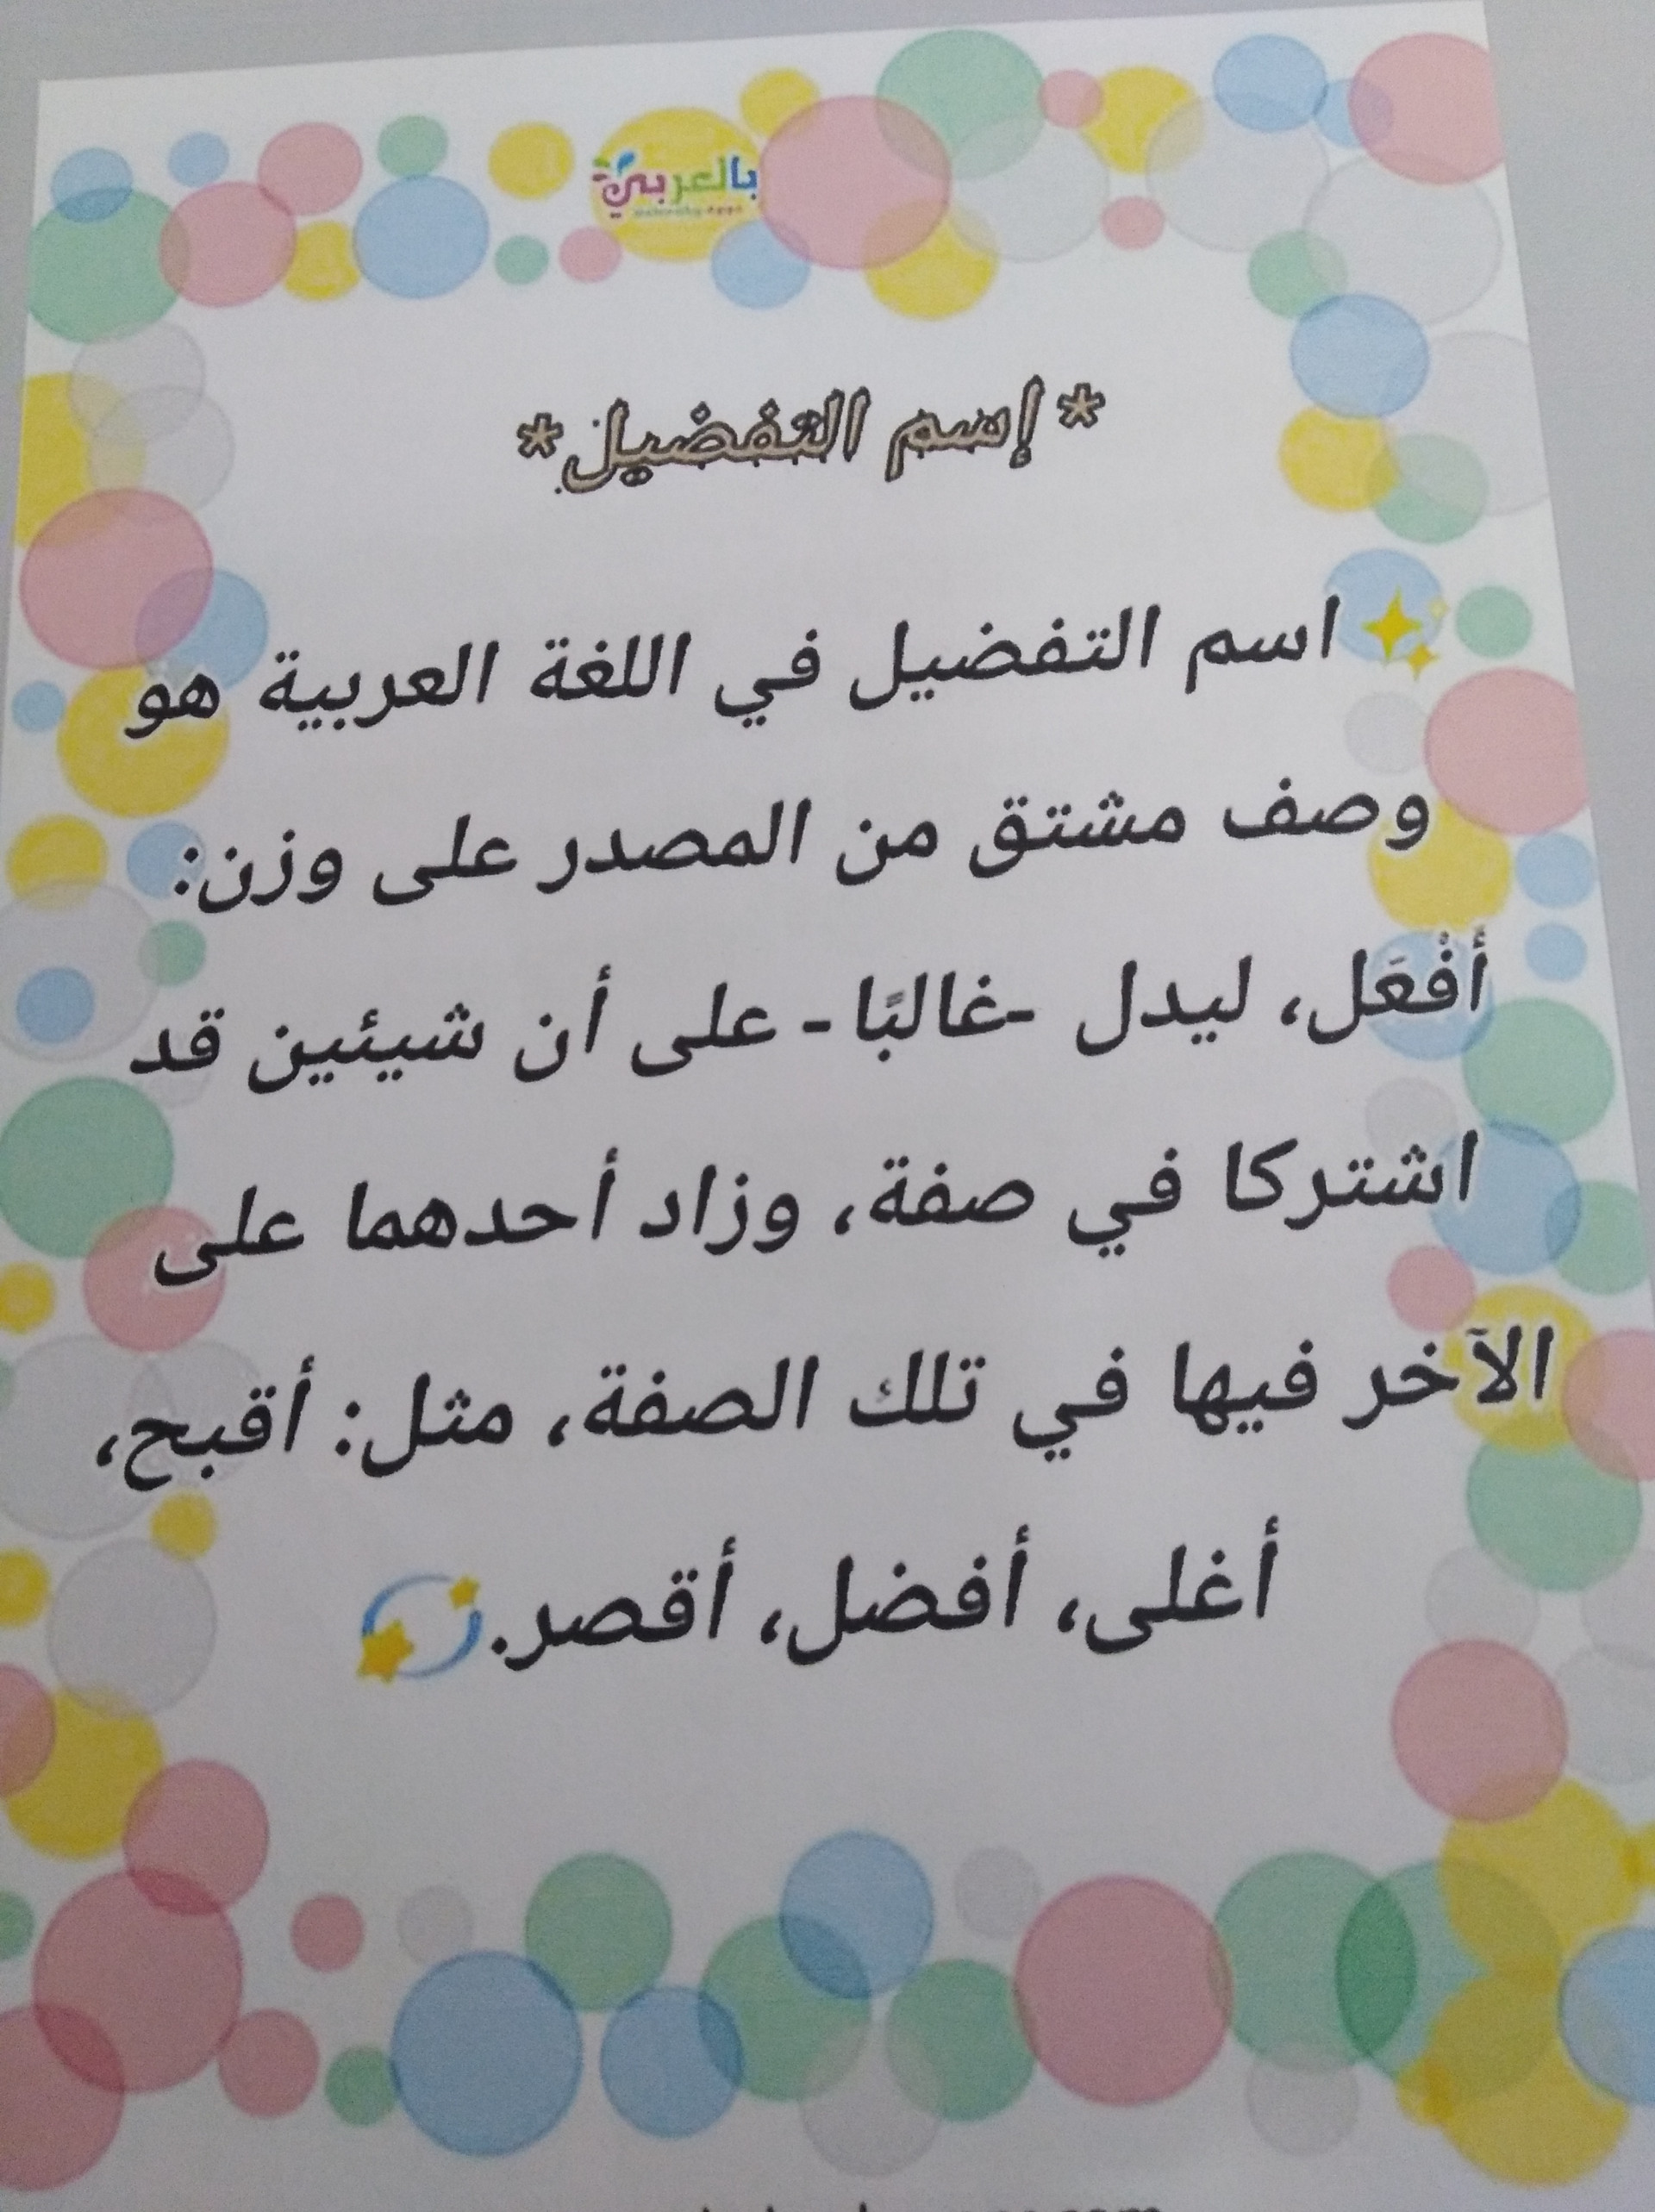 بالعربي
*إسم التفضيل*
اسم التفضيل في اللغة العربية هو
وصف مشتق من المصدر على وزن:
أفْعَل، ليدل -غالبًا- على أن شيئين قد
اشتركا في صفة، وزاد أحدهما على
الآخر فيها في تلك الصفة، مثل: أقبح،
أغلى، أفضل، أقصر.